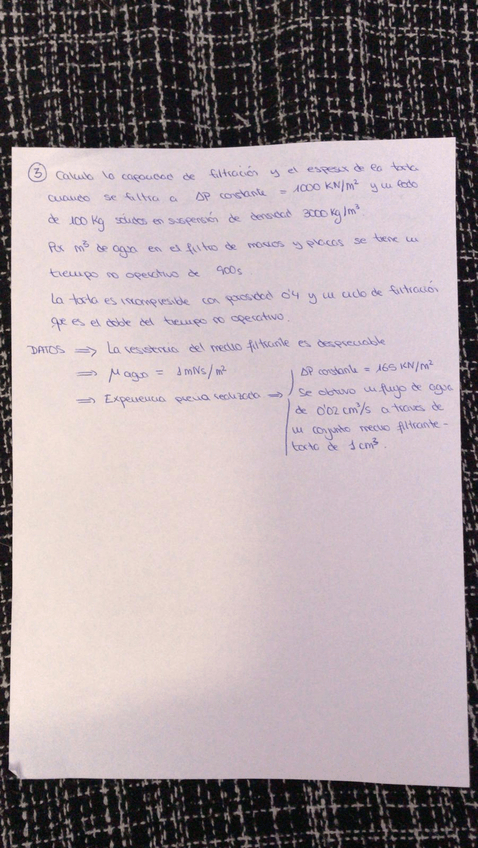 ③ Calcula la capacidad de filtración y el espesor de la torta
cuando se filtra a ΔP constante = 1000 KN/m² y un lodo
de 100 Kg sólidos en suspensión de densidad 3000 kg/m³.
Por m³ de agua en el filtro de marcos y placas se tiene un
tiempo no operativo de 900s
La torta es incompresible con porosidad 0'4 y un ciclo de filtración
que es el doble del tiempo no operativo.
DATOS ⟹ La resistencia del medio filtrante es despreciable
⟹ μ agua = 1 mNs/m²
⟹ Experiencia previa realizada ⟹
ΔP constante = 165 KN/m²
Se obtuvo un flujo de agua
de 0'02 cm³/s a través de
un conjunto medio filtrante-
torta de 1 cm³.